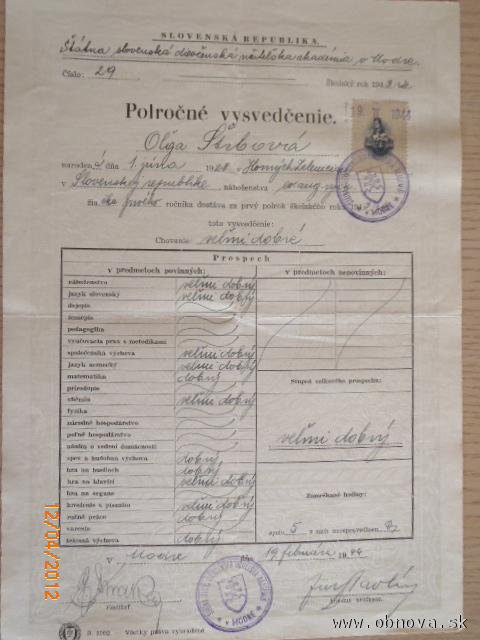 SLOVENSKÁ REPUBLIKA.
Štátna slovenská dievčenská učiteľská akadémia v Modre.
Číslo: 29
Školský rok 1943/44.
19. II. 1944
Polročné vysvedčenie.
Oľga
narodená dňa 1. júna 1928 v Horných
v Slovenskej republike náboženstva ev. aug. vyzn.
žiačka prvého ročníka dostáva za prvý polrok školského roku
toto vysvedčenie:
Chovanie: veľmi dobré
Prospech
v predmetoch povinných: v predmetoch nepovinných:
náboženstvo veľmi dobrý
jazyk slovenský veľmi dobrý
dejepis
zemepis
pedagogika
vyučovacia prax s metodikami
spoločenská výchova veľmi dobrý
jazyk nemecký veľmi dobrý
matematika dobrý
prírodopis
chémia veľmi dobrý
fyzika
Stupeň celkového prospechu:
veľmi dobrý
národné hospodárstvo
poľné hospodárstvo
náuka o vedení domácnosti
spev a hudobná výchova dobrý
hra na husliach dobrý
hra na klavíri veľmi dobrý
hra na organe
kreslenie s písaním veľmi dobrý
ručné práce dobrý
Zameškané hodiny:
spolu 5 z nich neospravedlnen
telesná výchova dobrý
v Modre dňa 19. februára 1944
riaditeľ
triedny profesor.
Š. 3092 Všetky práva vyhradené
12/04/2012
www.obnova.sk